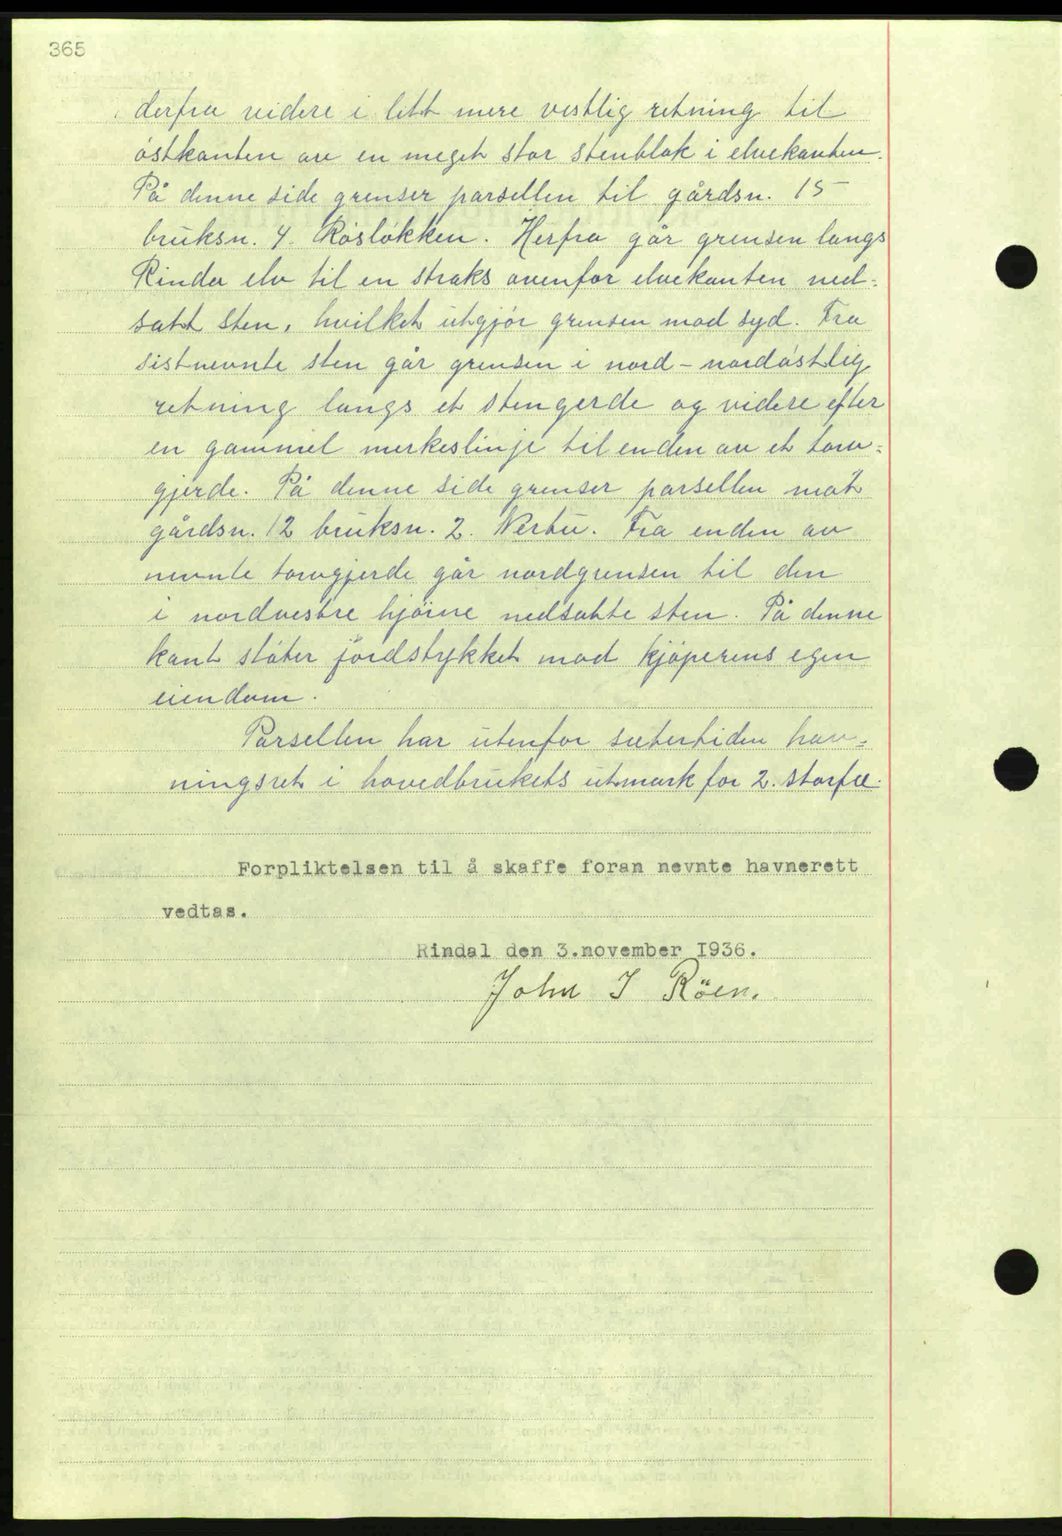 365
derfra videre i litt mere vestlig retning til
østkanten av en meget stor stenblok i elvekanten.
På denne side grenser parsellen til gårdsn. 15
bruksn. 4. Røsløkken. Herfra går grensen langs
Rinda elv til en straks ovenfor elvekanten ned-
satt sten, hvilket utgjør grensen mod syd. Fra
sistnevnte sten går grensen i nord - nordøstlig
retning langs et stengerde og videre efter
en gammel merkeslinje til enden av et torv-
gjerde. På denne side grenser parsellen mot
gårdsn. 12 bruksn. 2. Nertu. Fra enden av
nevnte torvgjerde går nordgrensen til den
i nordvestre hjørne nedsatte sten. På denne
kant støter jordstykket mod kjøperens egen
eiendom.
Parsellen har utenfor sætertiden hav-
ningsret i hovedbrukets utmark for 2. storfæ.
Forpliktelsen til å skaffe foran nevnte havnerett
vedtas.
Rindal den 3.november 1936.
John I Röen.